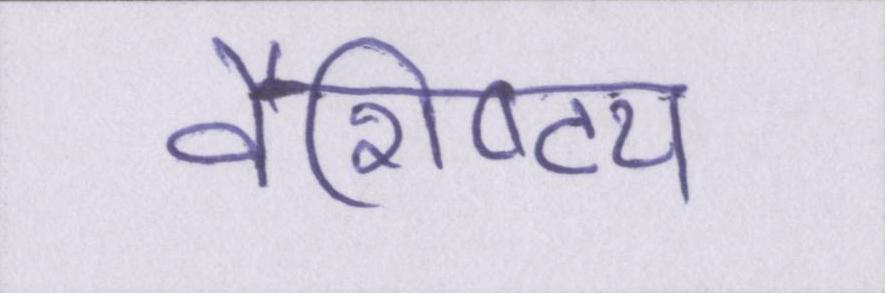 वैशिष्टय